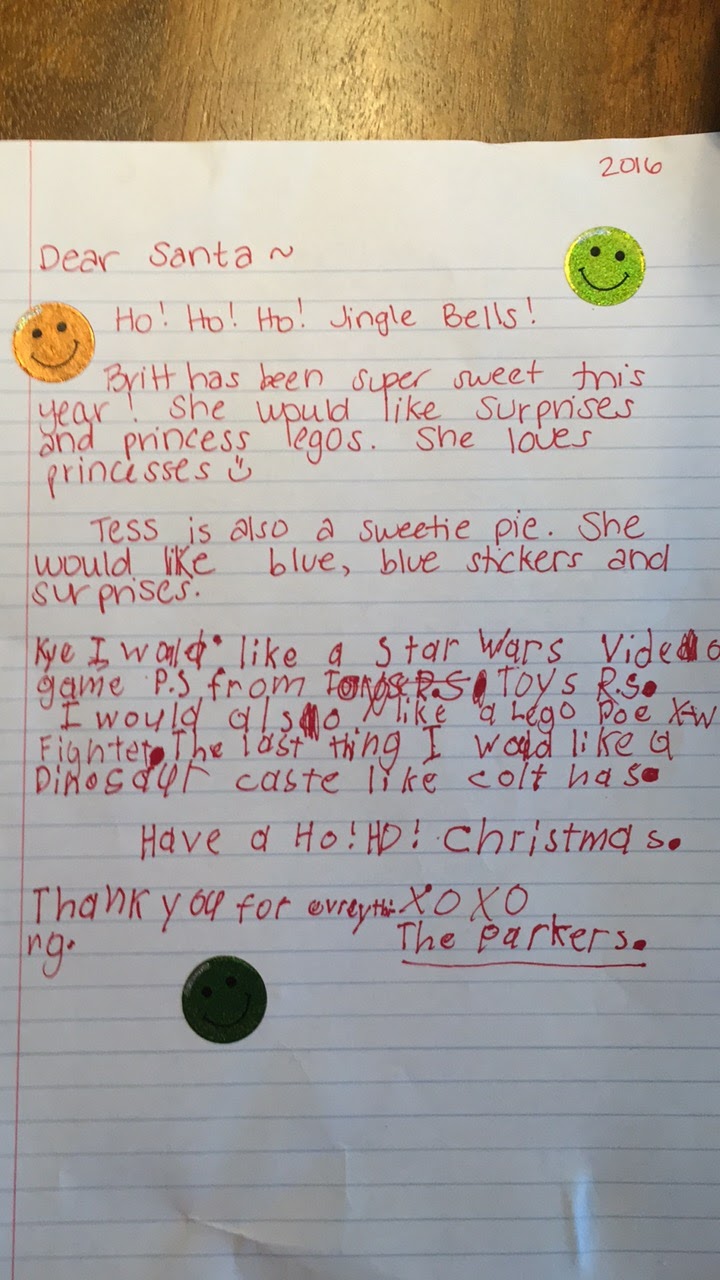 2016
Dear Santa ~
Ho! Ho! Ho! Jingle Bells!
Britt has been super sweet this
year! She would like surprises
and princess legos. She loves
princesses
Tess is also a sweetie pie. She
would like blue, blue stickers and
surprises.
Kye I wold like a Star Wars Video
game P.S from Toys R.S.
I would also like a Lego Poe X-W
Fighter. The last thing I woud like a
Dinosaur caste like colt has.
Have a Ho! HO! Christmas.
Thank you for evreythi XOXO
ng.
The Parkers.